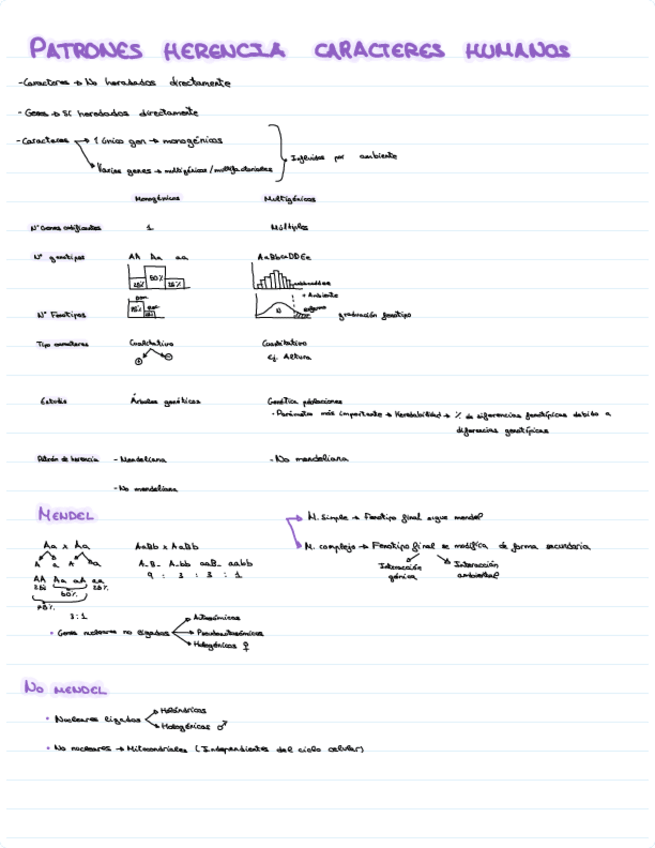 PATRONES HERENCIA CARACTERES HUMANOS
-Caracteres → No heredados directamente
- Genes → Sí heredados directamente
-Caracteres → 1 único gen → monogénicos
Varios genes → multigénicos / multifactoriales
Influidos por ambiente
Monogénicos Multigénicos
Nº Genes codificantes 1 Múltiples
Nº genotipos AA Aa aa AaBbCcDDEe
25% 50% 25%
+ Ambiente
Nº Fenotipos graduación fenotipo
Tipo caracteres Cualitativo Cuantitativo
+ - ej. Altura
Estudio Árboles genéticos Genética poblaciones
· Parámetro más importante → Heredabilidad → % de diferencias fenotípicas debido a
diferencias genotípicas
Patrón de herencia - Mendeliana - No mendeliana
- No mendeliana
MENDEL
M. Simple → Fenotipo final sigue mendel
M. complejo → Fenotipo final se modifica de forma secundaria
Interacción génica
Interacción ambiental
Aa x Aa AaBb x AaBb
A a A a A_B_ A_bb aaB_ aabb
AA Aa aA aa 9 : 3 : 3 : 1
25% 50% 25%
75%
3:1
· Genes nucleares no ligados
Autosómicos
Pseudoautosómicos
Hologénicos ♀
NO MENDEL
· Nucleares ligados
Holándricos
Hologénicos ♂
· No nucleares → Mitocondriales (Independientes del ciclo celular)